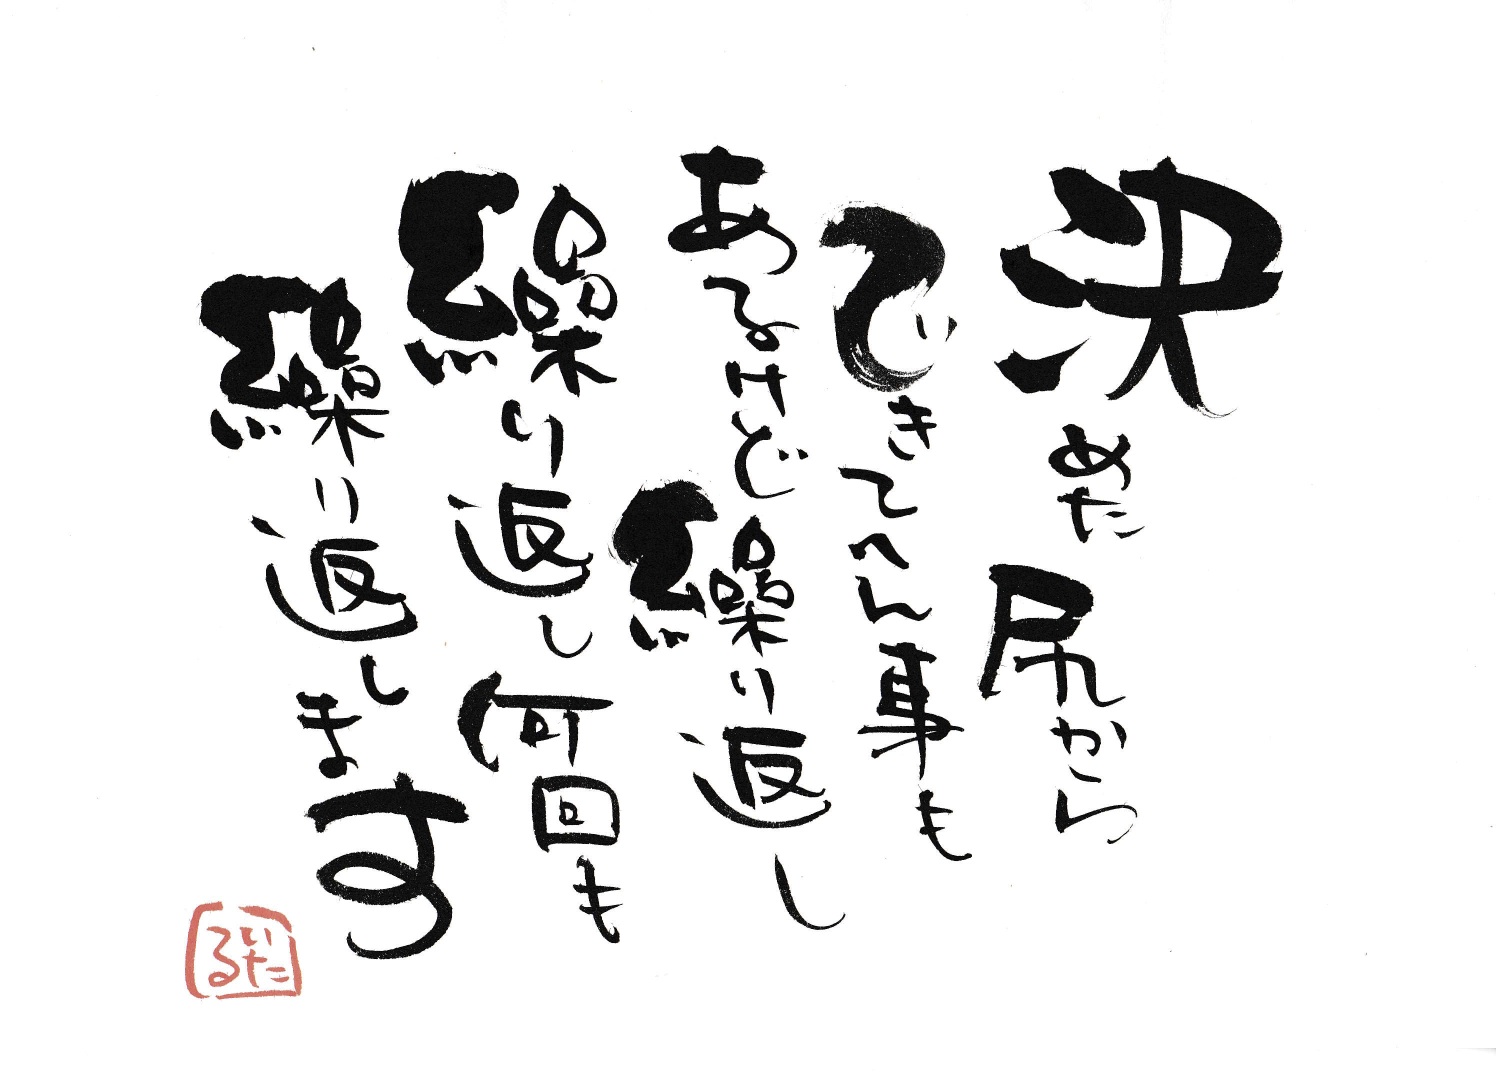 決めた尻から
できてへん事も
あるけど繰り返し
繰り返し何回も
繰り返します
いたる